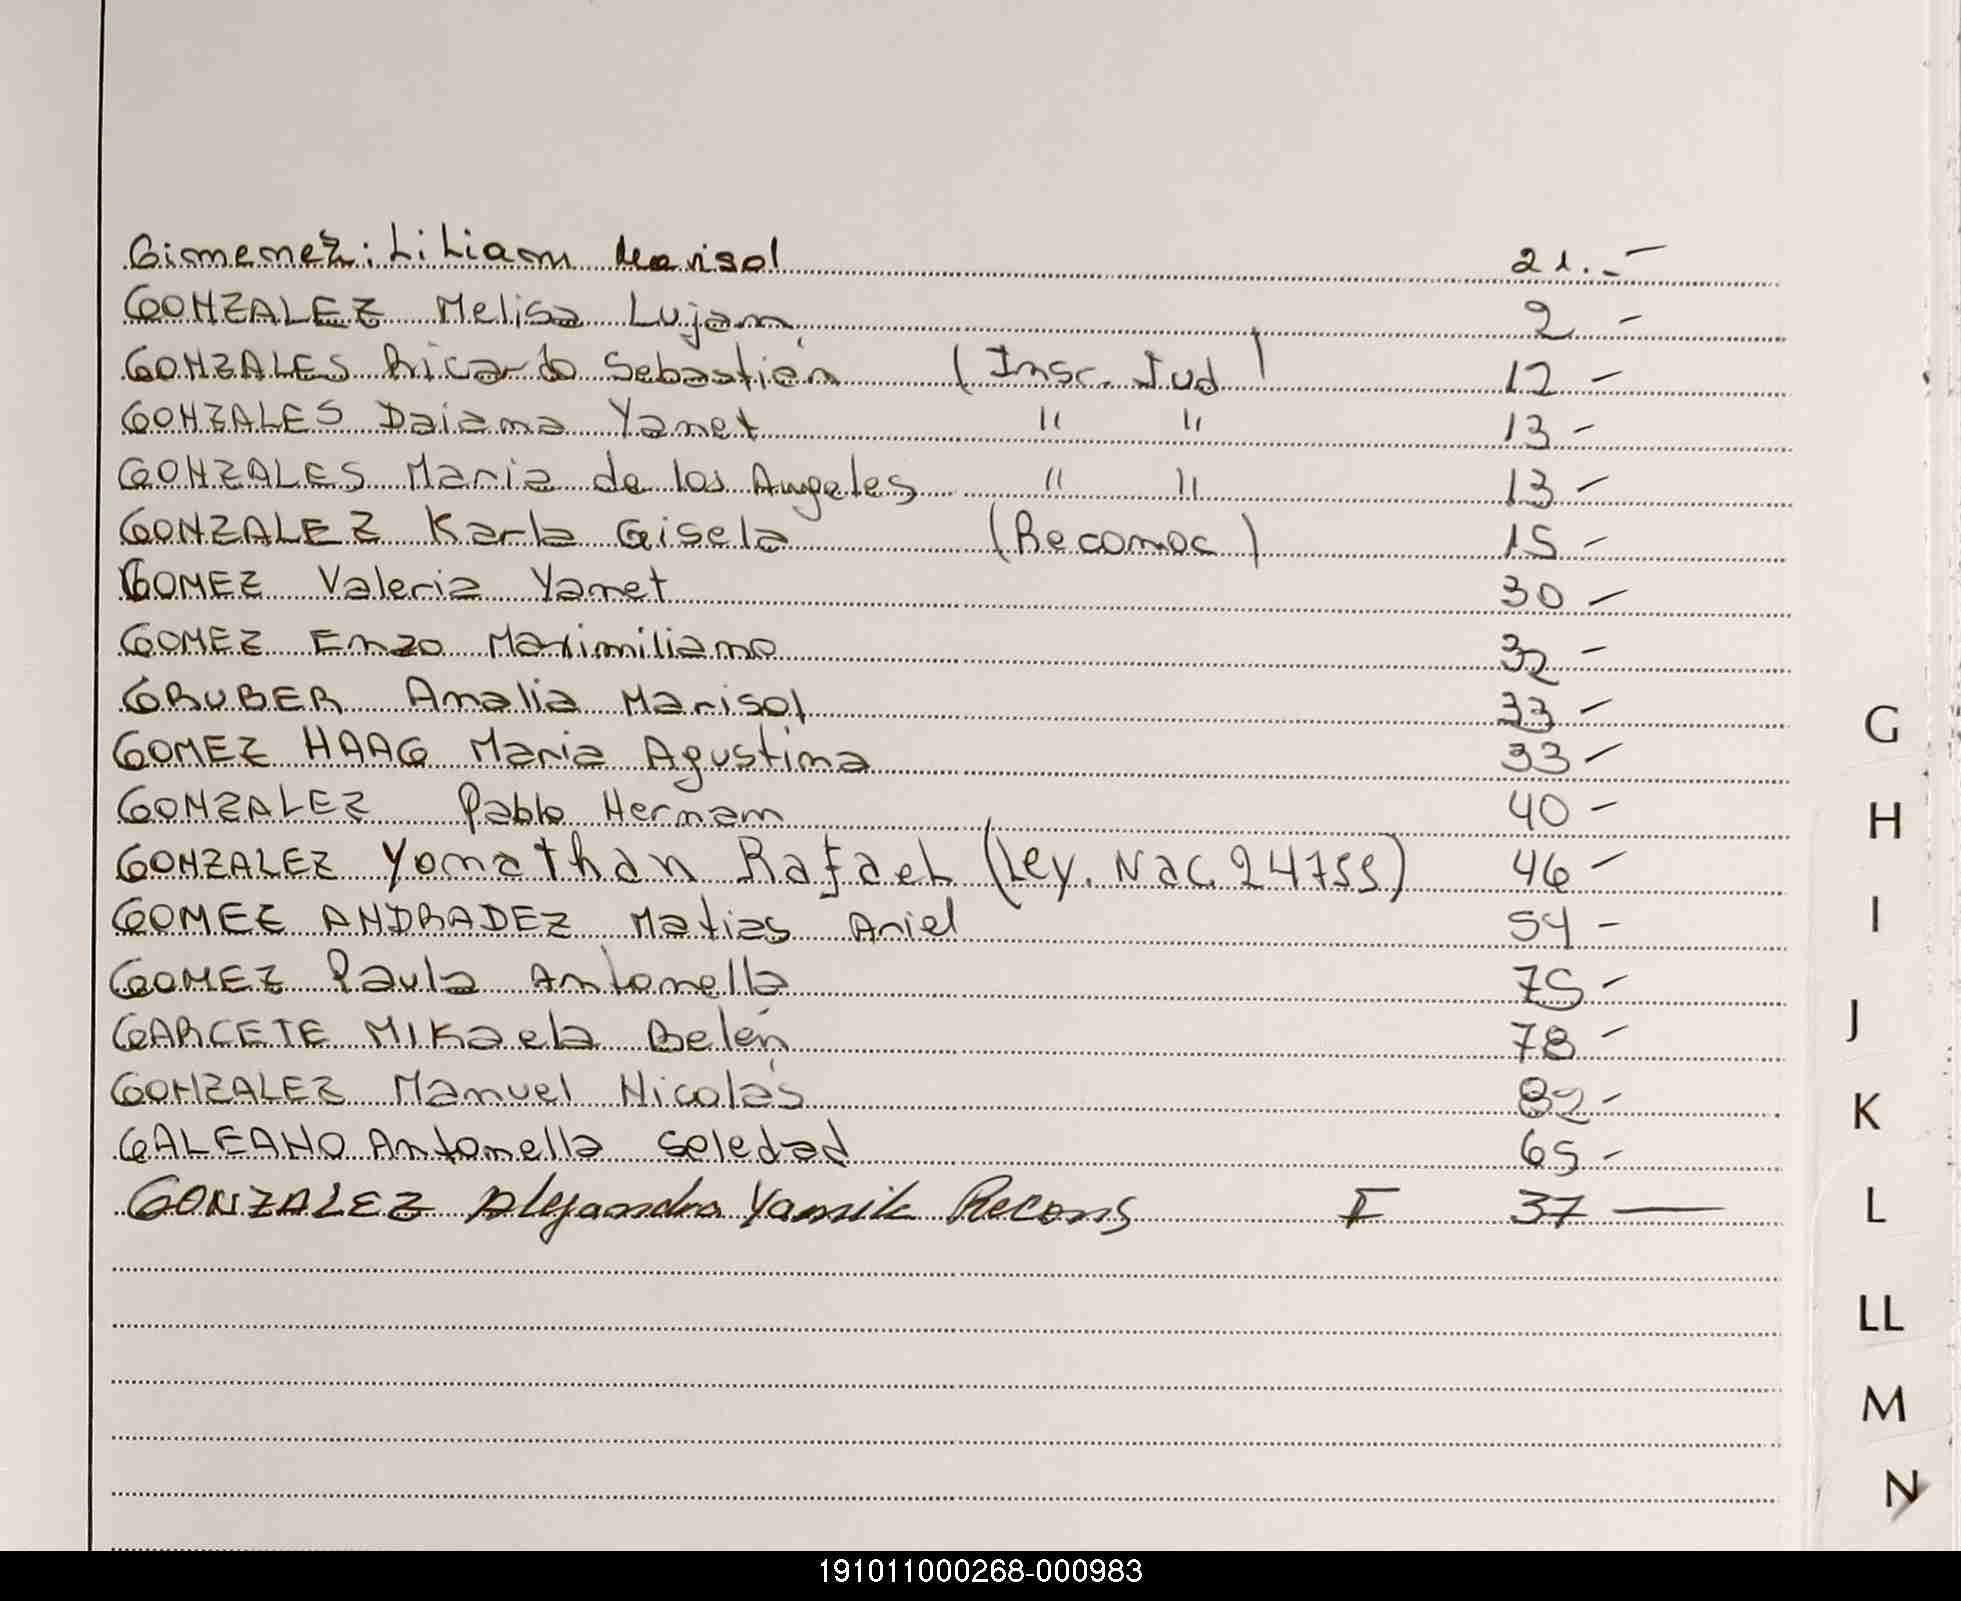 Gimenez: Liliam Marisol 21.-
GONZALEZ Melisa Lujan 2 -
GONZALES Ricardo Sebastián (Insc. Jud) 12 -
GONZALES Daiana Yanet " " 13 -
GONZALES Maria de los Angeles " " 13 -
GONZALEZ Karla Gisela (Reconoc) 15 -
GOMEZ Valeria Yanet 30 -
GOMEZ Enzo Maximiliano 32 -
GRUBER Analia Marisol 33 -
GOMEZ HAAG Maria Agustina 33 -
GONZALEZ Pablo Hernan 40 -
GONZALEZ Yonathan Rafael (Ley. Nac. 24755) 46 -
GOMEZ ANDRADEZ Matias Ariel 54 -
GOMEZ Paula Antonella 75 -
GARCETE MIKaela Belén 78 -
GONZALEZ Manuel Nicolás 82 -
GALEANO Antonella Soledad 65 -
GONZALEZ Alejandra Yamila Recons I 37 —
G
H
I
J
K
L
LL
M
N
191011000268-000983